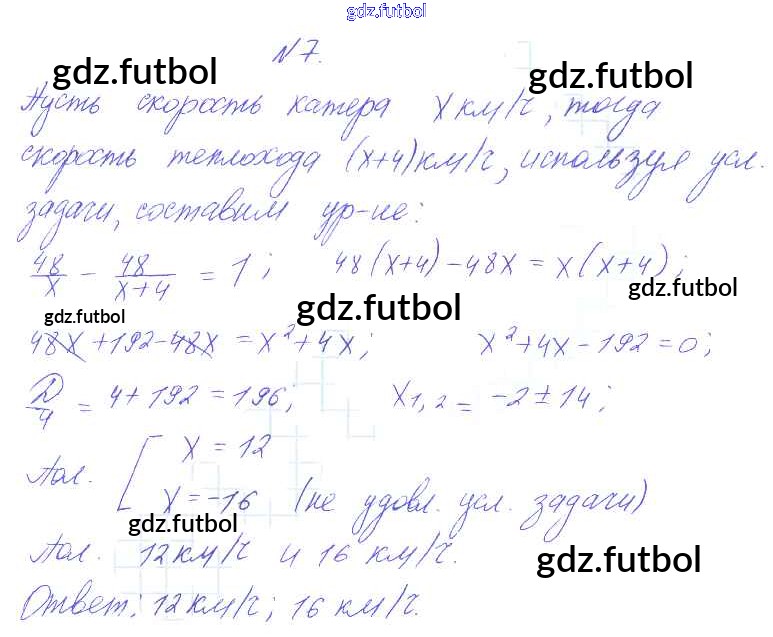 gdz.futbol
N7.
gdz.futbol gdz.futbol
Пусть скорость катера x км/ч, тогда
скорость теплохода (x+4) км/ч, используя усл.
задачи, составим ур-ие:
48/x - 48/(x+4) = 1; 48(x+4)-48x = x(x+4);
gdz.futbol gdz.futbol gdz.futbol
48x+192-48x = x²+4x; x²+4x-192=0;
D/4 = 4+192=196; x1,2 = -2±14;
Пол. [ x = 12
x = -16 (не удовл. усл. задачи)
gdz.futbol
Пол. 12 км/ч и 16 км/ч.
gdz.futbol
Ответ: 12 км/ч; 16 км/ч.